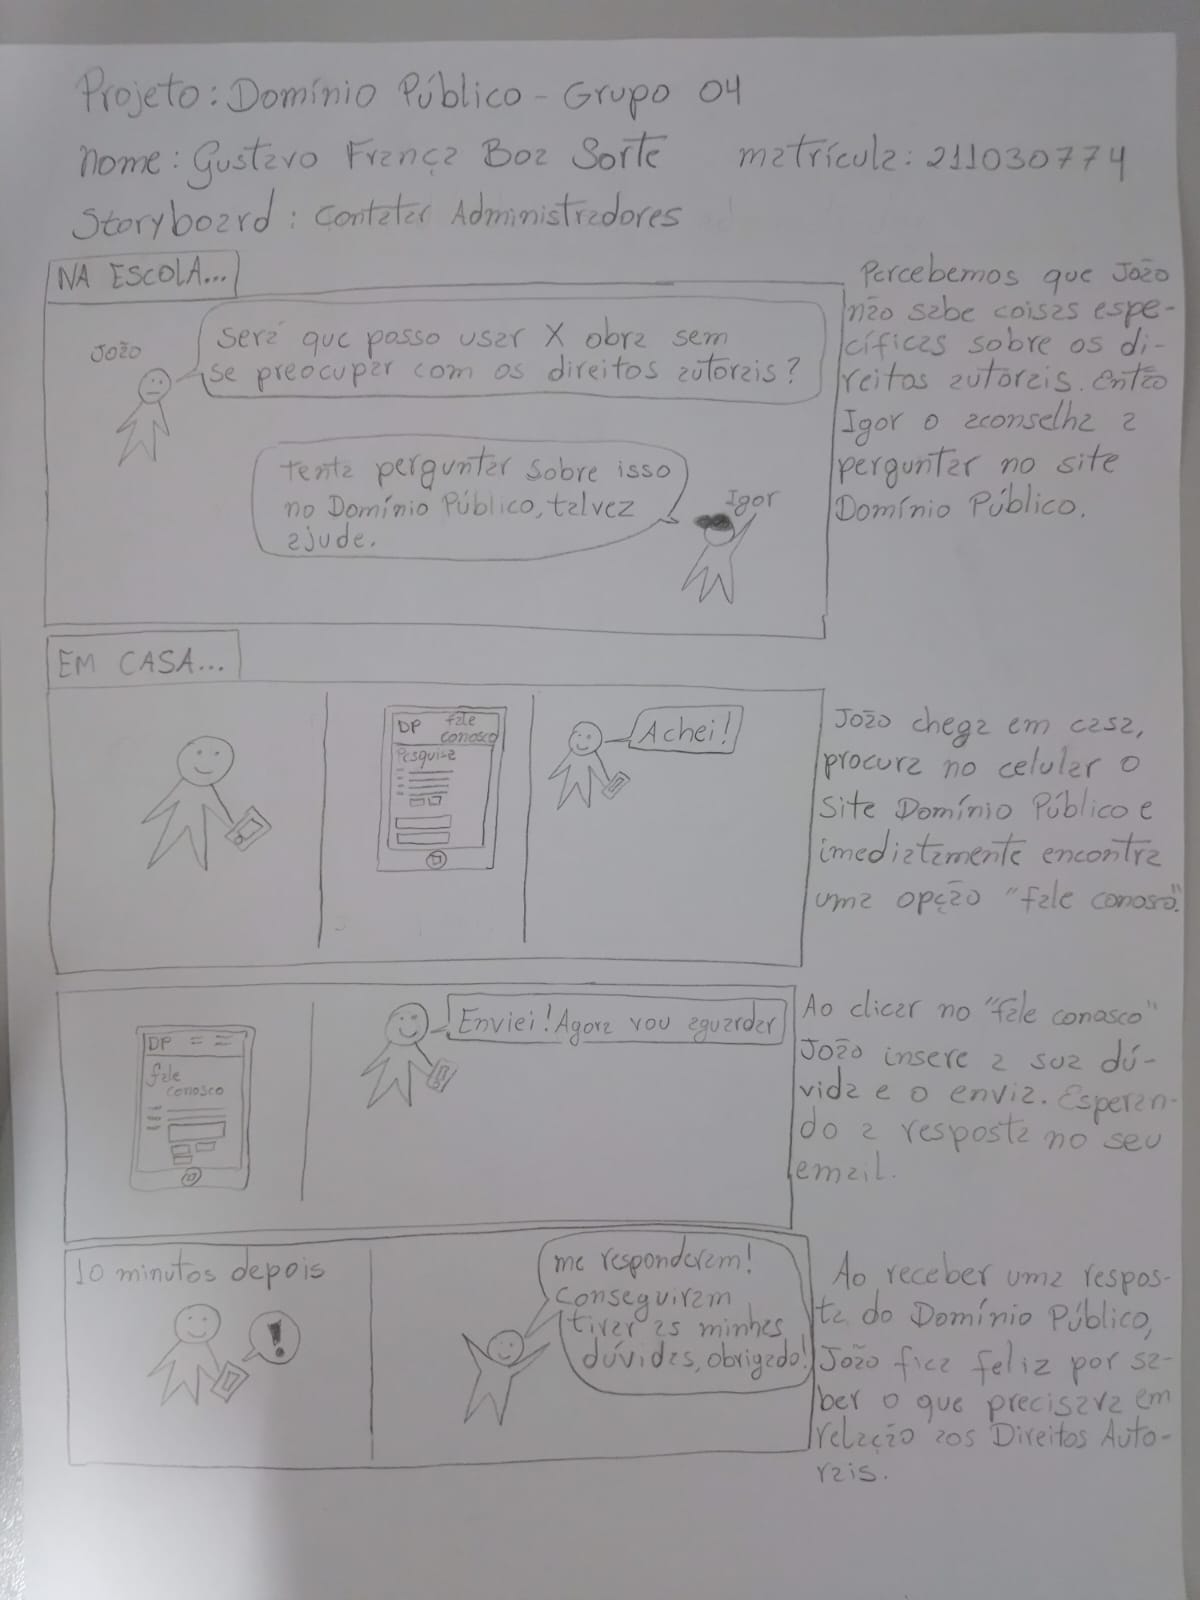 Projeto: Domínio Público - Grupo 04
Nome: Gustavo França Boa Sorte matrícula: 211030774
Storyboard: Contatar Administradores
NA ESCOLA...
João
Será que posso usar X obra sem
se preocupar com os direitos autorais?
Tenta perguntar sobre isso
no Domínio Público, talvez
ajude.
Igor
Percebemos que João
não sabe coisas espe-
cíficas sobre os di-
reitos autorais. Então
Igor o aconselha a
perguntar no site
Domínio Público.
EM CASA...
DP fale
conosco
Pesquisa
Achei!
João chega em casa,
procura no celular o
site Domínio Público e
imediatamente encontra
uma opção "fale conosco".
DP
fale
conosco
Enviei! Agora vou aguardar
Ao clicar no "fale conosco"
João insere a sua dú-
vida e o envia. Esperan-
do a resposta no seu
email.
10 minutos depois
!
me responderam!
Conseguiram
tirar as minhas
dúvidas, obrigado!
Ao receber uma respos-
ta do Domínio Público,
João fica feliz por sa-
ber o que precisava em
relação aos Direitos Auto-
rais.